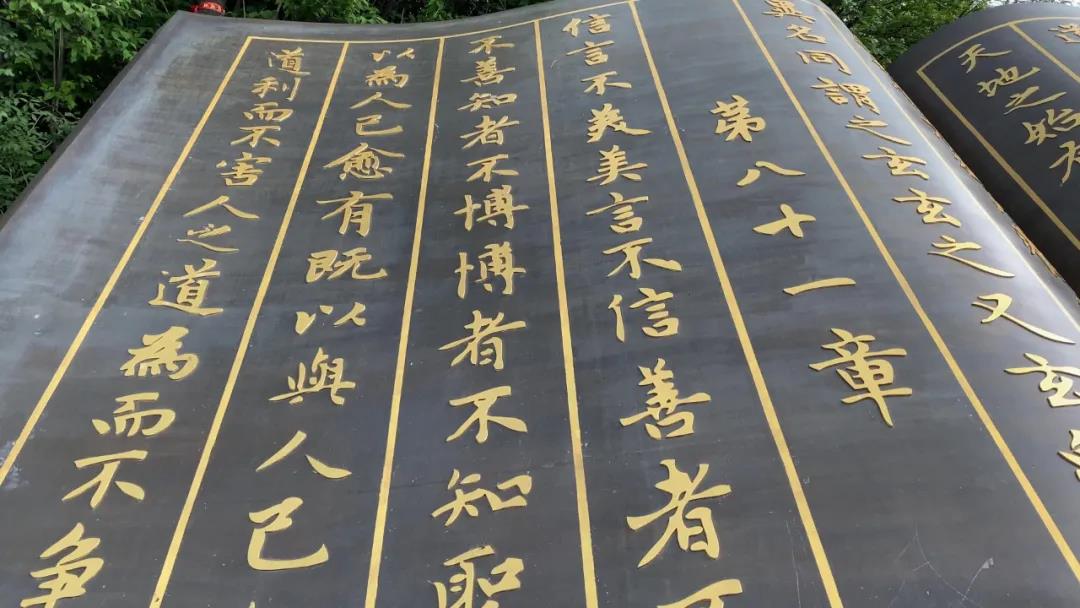 天地之始无
異名同謂之玄玄之又玄
第八十一章
信言不美美言不信善者不
不善知者不博博者不知聖
以為人己愈有既以與人己
道利而不害人之道為而不争